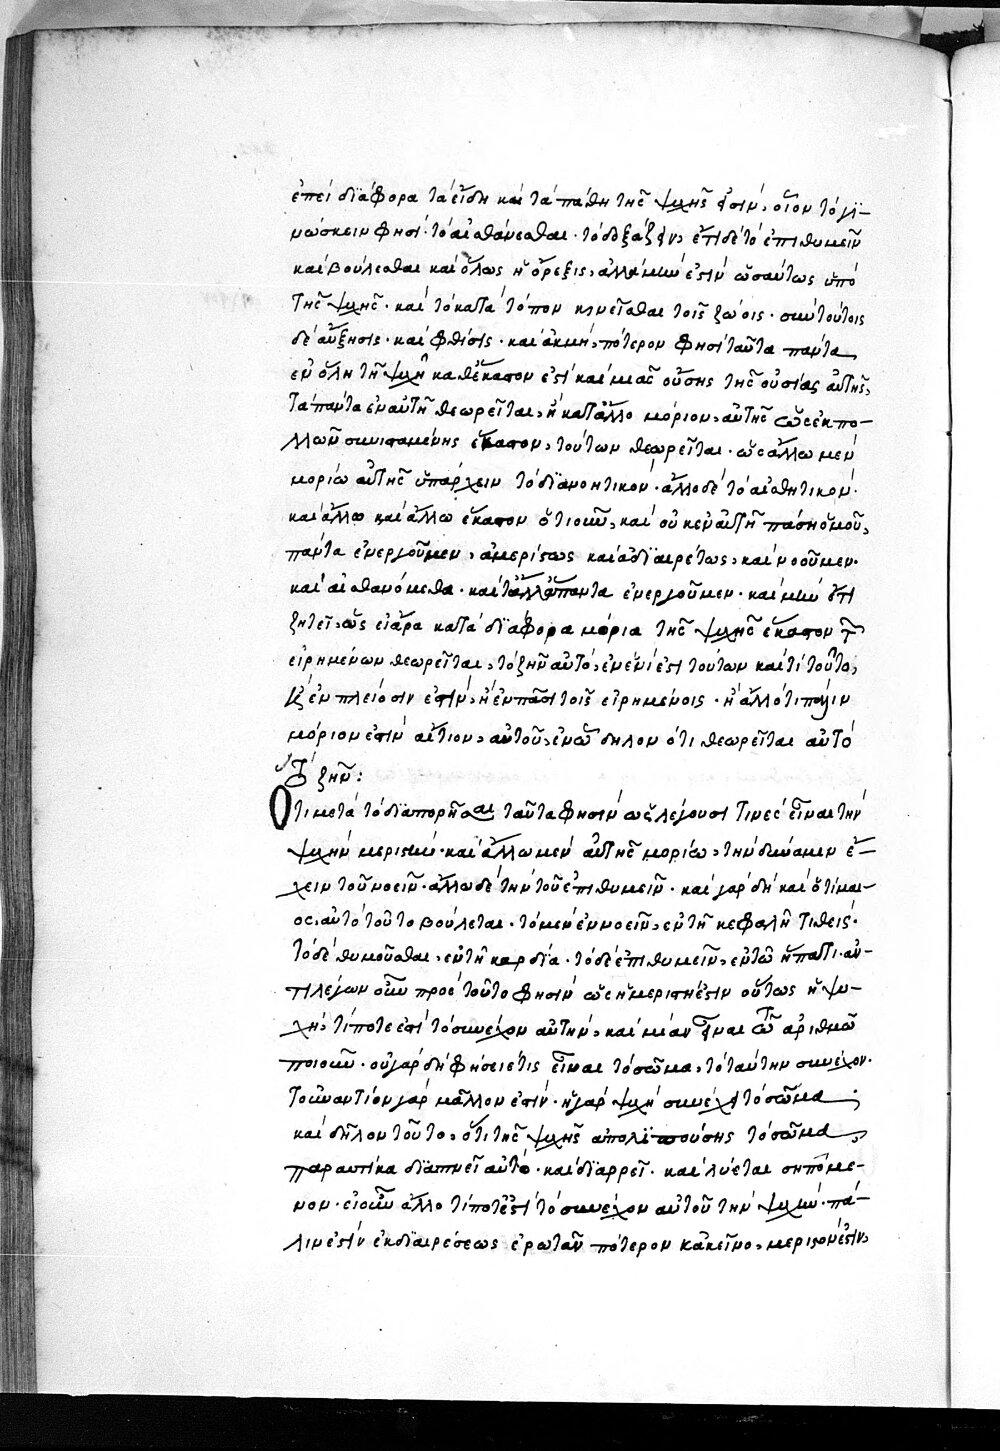 ἐπεὶ διάφορα τὰ εἴδη καὶ τὰ πάθη τῆς ψυχῆς εἰσὶν, οἷον τὸ γι-
νώσκειν φησὶ· τὸ αἰσθάνεσθαι· τὸ δοξάζειν, ἔτι δὲ τὸ ἐπιθυμεῖν
καὶ βούλεσθαι καὶ ὅλως ἡ ὄρεξις, ἀλλὰ μὴν ἐστὶν ὡσαύτως ὑπὸ
τῆς ψυχῆς· καὶ τὸ κατὰ τόπον κινεῖσθαι τοῖς ζώοις· σὺν τούτοις
δὲ αὔξησις· καὶ φθίσις· καὶ ἀκμὴ, πότερον φησὶ ταῦτα πάντα
ἐν ὅλῃ τῇ ψυχῇ καθέκαστον ἐστὶ καὶ μιᾶς οὔσης τῆς οὐσίας αὐτῆς,
τὰ πάντα ἐν αὐτῇ θεωρεῖται, ἢ κατάλλο μόριον, αὐτῆς ὡς ἐκ πο-
λλῶν συνισταμένης ἕκαστον, τούτων θεωρεῖται· ὡς ἄλλω μὲν
μορίω αὐτῆς ὑπάρχειν τὸ διανοητικὸν· ἄλλο δὲ τὸ αἰσθητικὸν·
καὶ ἄλλω καὶ ἄλλω ἕκαστον ὁτιοῦν, καὶ οὐκ ἐν αὐτῇ πάση ὁμοῦ,
πάντα ἐνεργοῦμεν, ἀμερίστως καὶ ἀδιαιρέτως, καὶ νοοῦμεν·
καὶ αἰσθανόμεθα· καὶ τἄλλ' ἅπαντα ἐνεργοῦμεν· καὶ μὴν ἔτι
ζητεῖ, ὡς εἰ ἄρα κατὰ διάφορα μόρια τῆς ψυχῆς ἕκαστον τῶν
εἰρημένων θεωρεῖται, τὸ ζῆν αὐτὸ, ἐν ἑνὶ ἐστὶ τούτων καὶ τί τοῦτο,
ἢ ἐν πλείοσιν ἐστὶν, ἢ ἐν πᾶσι τοῖς εἰρημένοις· ἢ ἄλλό τι πάλιν
μόριον ἐστὶν αἴτιον, αὐτοῦ, ἐν ὧ δηλον ὅτι θεωρεῖται αὐτὸ
τὸ ζῆν:
Ὅτι μετὰ τὸ διαπορῆσαι ταῦτα φησὶν ὡς λέγουσι τινὲς εἶναι τὴν
ψυχὴν μεριστὴν· καὶ ἄλλω μὲν αὐτῆς μορίω, τὴν δύναμιν ἔ-
χειν τοῦ νοεῖν· ἄλλω δὲ τὴν τοῦ ἐπιθυμεῖν· καὶ γὰρ δὴ καὶ ὁ τίμαι-
ος, αὐτὸ τοῦτο βούλεται· τὸ μὲν ἐννοεῖν, ἐν τῇ κεφαλῇ τιθεὶς·
τὸ δὲ θυμοῦσθαι, ἐν τῇ καρδία· τὸ δὲ ἐπιθυμεῖν, ἐν τῶ ἥπατι· ἀν-
τιλέγων οὖν πρὸς τοῦτο φησὶν ὡς εἰ μεριστὴ ἐστὶν οὕτως ἡ ψυ-
χὴ, τί ποτε ἐστὶ τὸ συνέχον αὐτὴν, καὶ μίαν εἶναι τῶ ἀριθμῶ
ποιοῦν· οὐ γὰρ δὴ φήσειέ τις εἶναι τὸ σῶμα, τὸ ταύτην συνέχον·
τοὐναντίον γὰρ μᾶλλον ἐστὶν· ἡ γὰρ ψυχὴ συνέχει τὸ σῶμα;
καὶ δῆλον τοῦτο, ὅτι τῆς ψυχῆς ἀπολιπούσης τὸ σῶμα,
παραυτίκα διαπνεῖ αὐτὸ· καὶ διαρρεῖ· καὶ λύεται σηπόμε-
νον· εἰ οὖν ἄλλο τί ποτέ ἐστὶ τὸ συνέχον αὐτοῦ τὴν ψυχὴν· πά-
λιν ἐστὶν ἐκ διαιρέσεως ἐρωτᾶν πότερον κἀκεῖνο, μεριστόν ἐστιν,